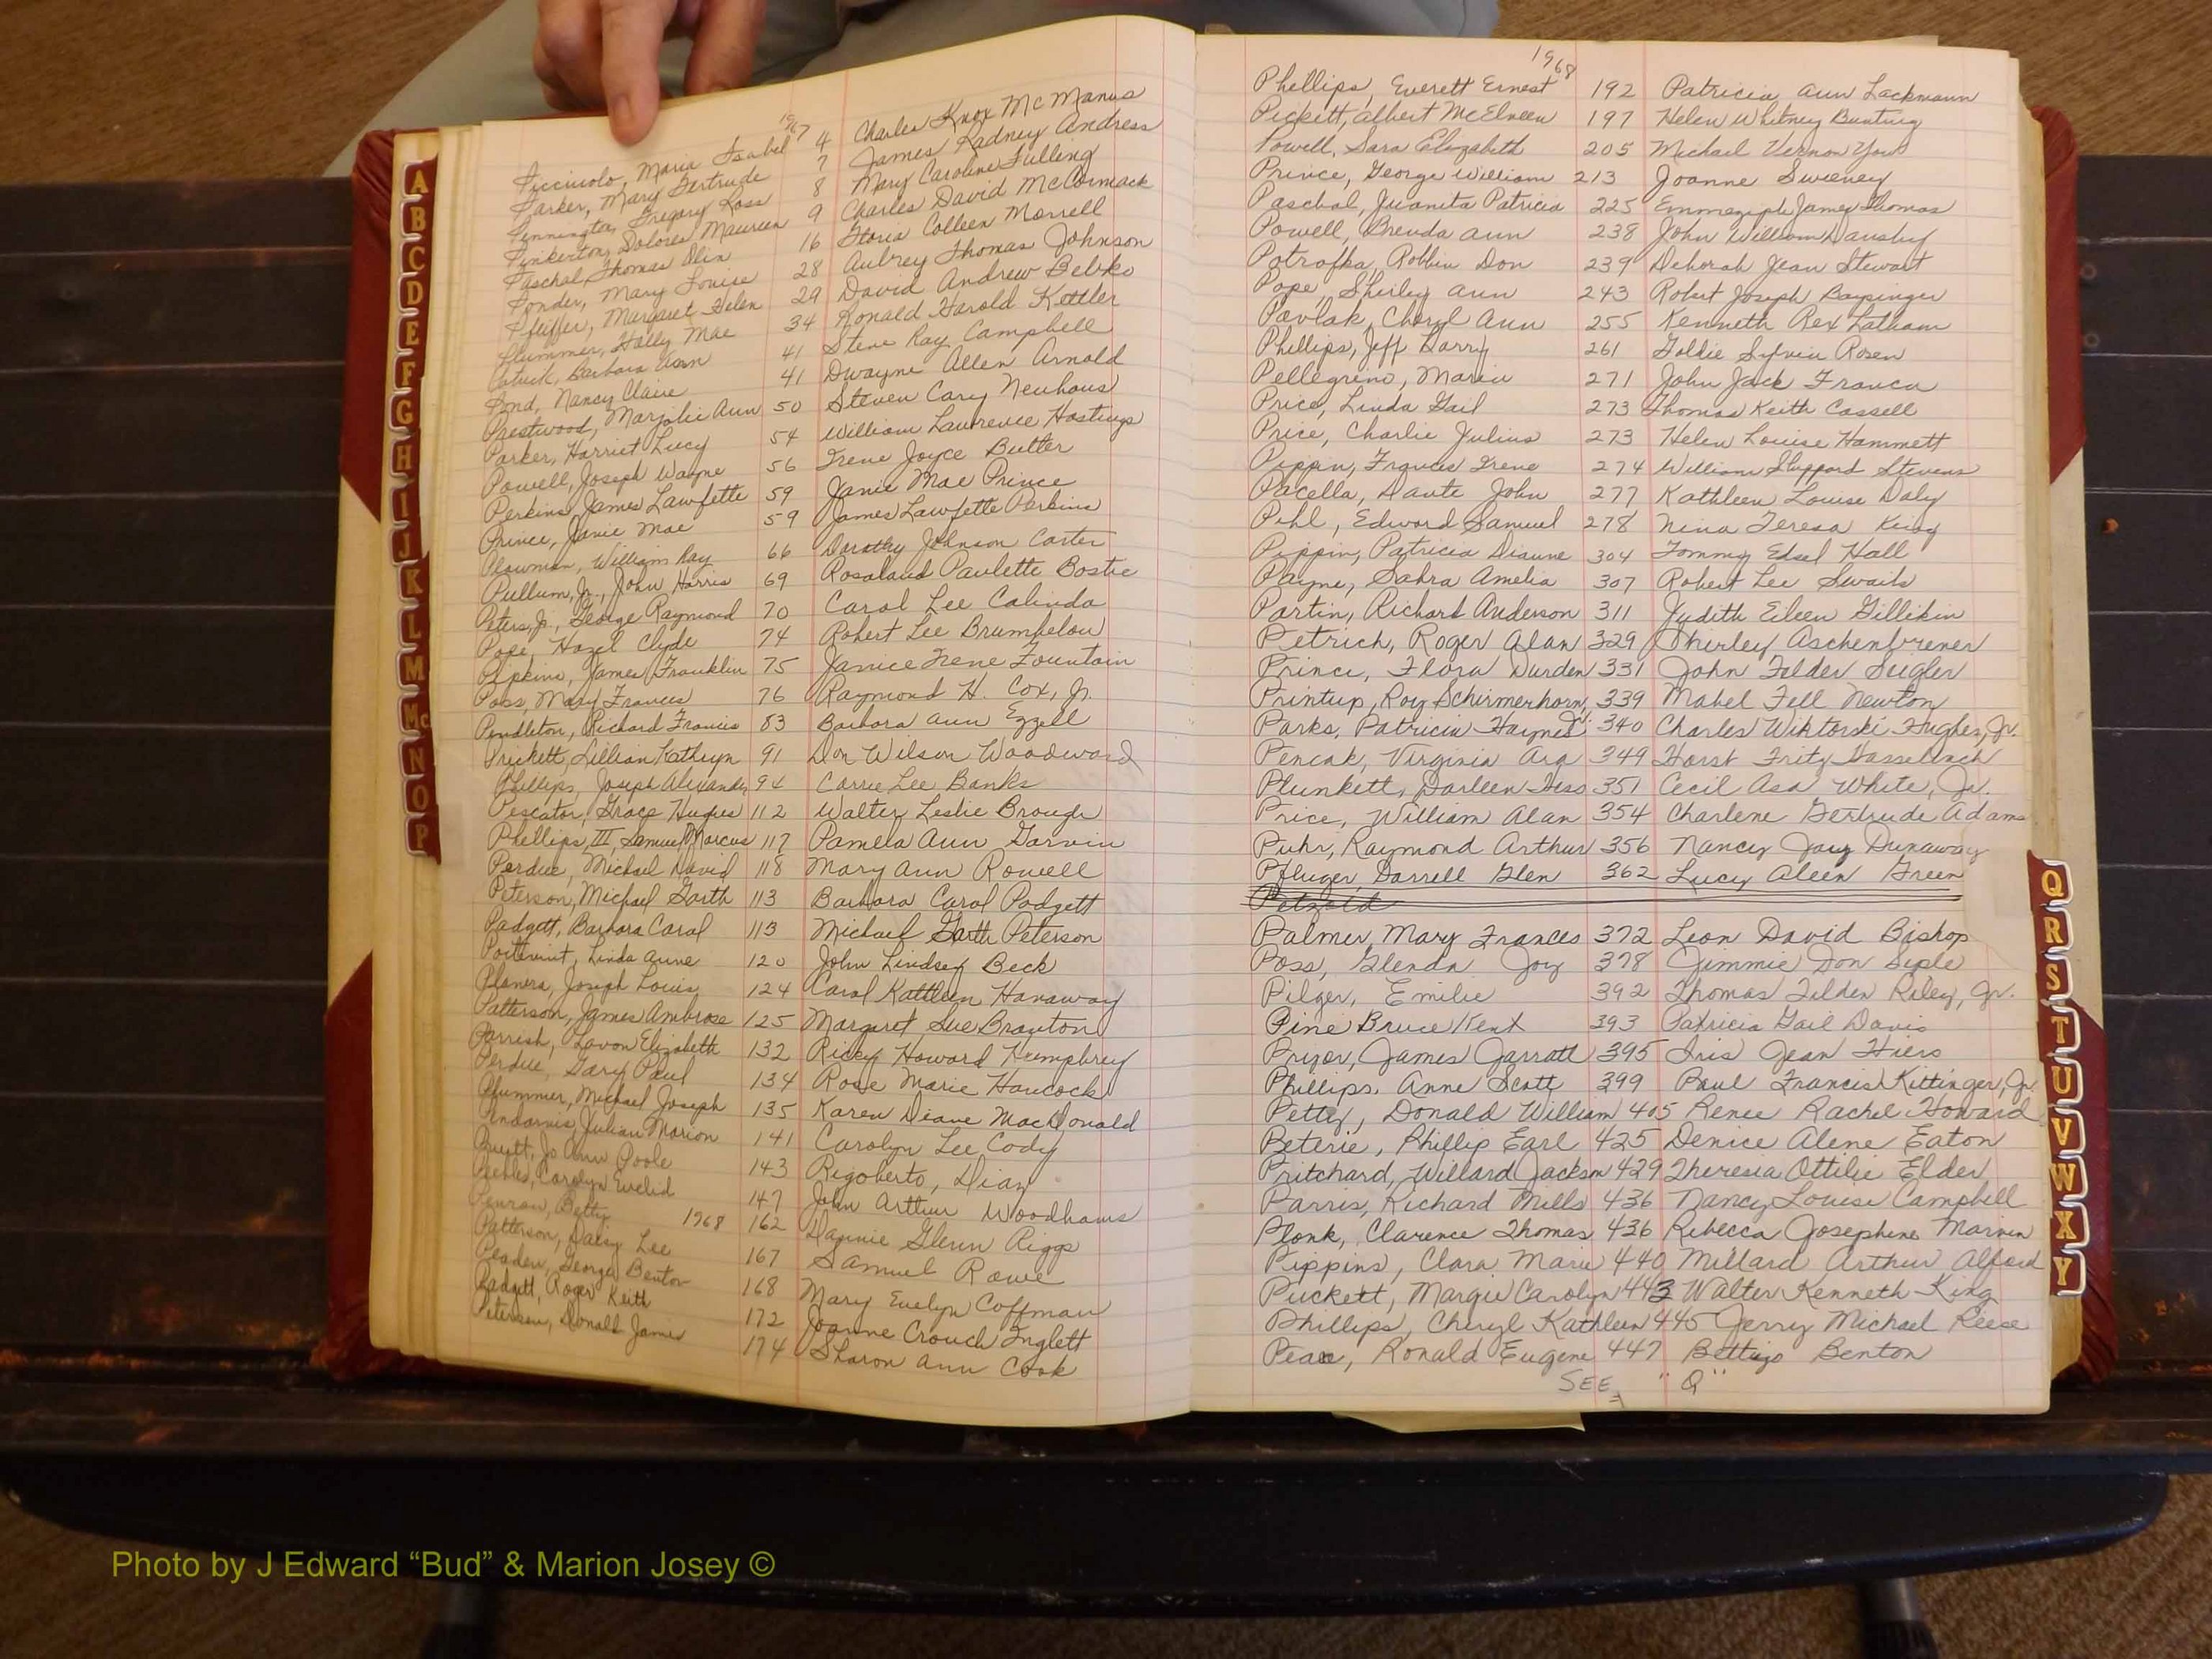 1967
Piccinolo, Maria Isabel 4 Charles Knox McManus
Parker, Mary Gertrude 7 James Radney Andress
Pennington, Gregory Ross 8 Mary Caroline Fulling
Pinkerton, Dolores Maureen 9 Charles David McCormack
Paschal, Thomas Olin 16 Gloria Colleen Morrell
Ponder, Mary Louise 28 Aubrey Thomas Johnson
Pfeiffer, Margaret Helen 29 David Andrew Bebko
Plummer, Holly Mae 34 Ronald Harold Kettler
Patrick, Barbara Ann 41 Steve Ray Campbell
Pond, Nancy Claire 41 Dwayne Allen Arnold
Prestwood, Marjolie Ann 50 Steven Cary Neuhaus
Parker, Harriet Lucy 54 William Lawrence Hastings
Powell, Joseph Wayne 56 Irene Joyce Butler
Perkins, James Lawfette 59 Janie Mae Prince
Prince, Janie Mae 59 James Lawfette Perkins
Plowman, William Ray 66 Dorothy Johnson Carter
Pullum, Jr., John Harris 69 Rosaland Paulette Bostic
Peters, Jr., George Raymond 70 Carol Lee Calinda
Pope, Hazel Clyde 74 Robert Lee Brumbelow
Pipkins, James Franklin 75 Janice Irene Fountain
Poss, Mary Frances 76 Raymond H. Cox, Jr.
Pendleton, Richard Francis 83 Barbara Ann Ezzell
Prickett, Lillian Kathryn 91 Don Wilson Woodward
Phillips, Joseph Alexander 94 Carrie Lee Banks
Pescator, Grace Hughes 112 Walter Leslie Brough
Phillips, III, Samuel Marcus 117 Pamela Ann Garvin
Perdue, Michael David 118 Mary Ann Rowell
Peterson, Michael Garth 113 Barbara Carol Padgett
Padgett, Barbara Carol 113 Michael Garth Peterson
Poitevint, Linda Anne 120 John Lindsey Beck
Planera, Joseph Louis 124 Carol Kathleen Hanaway
Patterson, James Ambrose 125 Margaret Sue Branton
Parrish, Lavon Elizabeth 132 Ricky Howard Humphrey
Perdue, Gary Paul 134 Rose Marie Hancock
Plummer, Michael Joseph 135 Karen Diane MacDonald
Pendarvis, Julian Marion 141 Carolyn Lee Cody
Pruett, Jo Ann Poole 143 Rigoberto, Diaz
Peebles, Carolyn Evelid 147 John Arthur Woodhams
Penrow, Betty 1968 162 Dannie Glenn Riggs
Patterson, Daisy Lee 167 Samuel Rowe
Peaden, George Benton 168 Mary Evelyn Coffman
Padgett, Roger Keith 172 Joanne Crouch Inglett
Petersen, Donald James 174 Sharon Ann Cook
1968
Phillips, Everett Ernest 192 Patricia Ann Lackmann
Pickett, Albert McElveen 197 Helen Whitney Bunting
Powell, Sara Elizabeth 205 Michael Vernon Yow
Prince, George William 213 Joanne Sweeney
Paschal, Juanita Patricia 225 James Thomas
Powell, Brenda Ann 238 John William Dansby
Potrafka, Robbin Don 239 Deborah Jean Stewart
Pope, Shirley Ann 243 Robert Joseph Baysinger
Pavlak, Cheryl Ann 255 Kenneth Rex Latham
Phillips, Jeff Barry 261 Goldie Sylvia Rosen
Pellegrino, Maria 271 John Jack Franca
Price, Linda Gail 273 Thomas Keith Cassell
Price, Charlie Julius 273 Helen Louise Hammett
Pippin, Frances Irene 274 William Sheppard Stevens
Pacella, Dante John 277 Kathleen Louise Daly
Pihl, Edward Samuel 278 Nina Teresa King
Pippin, Patricia Dianne 304 Tommy Edsel Hall
Payne, Sahra Amelia 307 Robert Lee Swails
Partin, Richard Anderson 311 Judith Eileen Gillikin
Petrich, Roger Alan 329 Shirley Aschenbrener
Prince, Flora Durden 331 John Felder Seigler
Printup, Roy Schirmerhorn, Jr. 339 Mabel Fell Newton
Parks, Patricia Haynes 340 Charles Wiktorski Hughes, Jr.
Pencak, Virginia Ara 349 Horst Fritz Hasselbach
Plunkett, Darleen Hess 351 Cecil Asa White, Jr.
Price, William Alan 354 Charlene Gertrude Adams
Puhr, Raymond Arthur 356 Nancy Joy Dunaway
Pfluger, Darrell Glen 362 Lucy Aleen Green
Petzold
Palmer, Mary Frances 372 Leon David Bishop
Poss, Glenda Joy 378 Jimmie Don Siple
Pilger, Emilie 392 Thomas Tilden Riley, Jr.
Pine Bruce Kent 393 Patricia Gail Davis
Pryor, James Jarratt 395 Iris Jean Hiers
Phillips, Anne Scott 399 Paul Francis Kittinger, Jr.
Petty, Donald William 405 Renee Rachel Howard
Peterie, Phillip Earl 425 Denice Alene Eaton
Pritchard, Willard Jackson 429 Theresia Ottilie Elder
Parris, Richard Mills 436 Nancy Louise Campbell
Plonk, Clarence Thomas 436 Rebecca Josephine Marvin
Pippins, Clara Marie 440 Millard Arthur Alford
Puckett, Margie Carolyn 443 Walter Kenneth King
Phillips, Cheryl Kathleen 445 Jerry Michael Reese
Ronald Eugene 447 Benton
SEE "Q"
A
B
C
D
E
F
G
H
I
J
K
L
M
Mc
N
O
P
Q
R
S
T
U
V
W
X
Y
Photo by J Edward “Bud” & Marion Josey ©